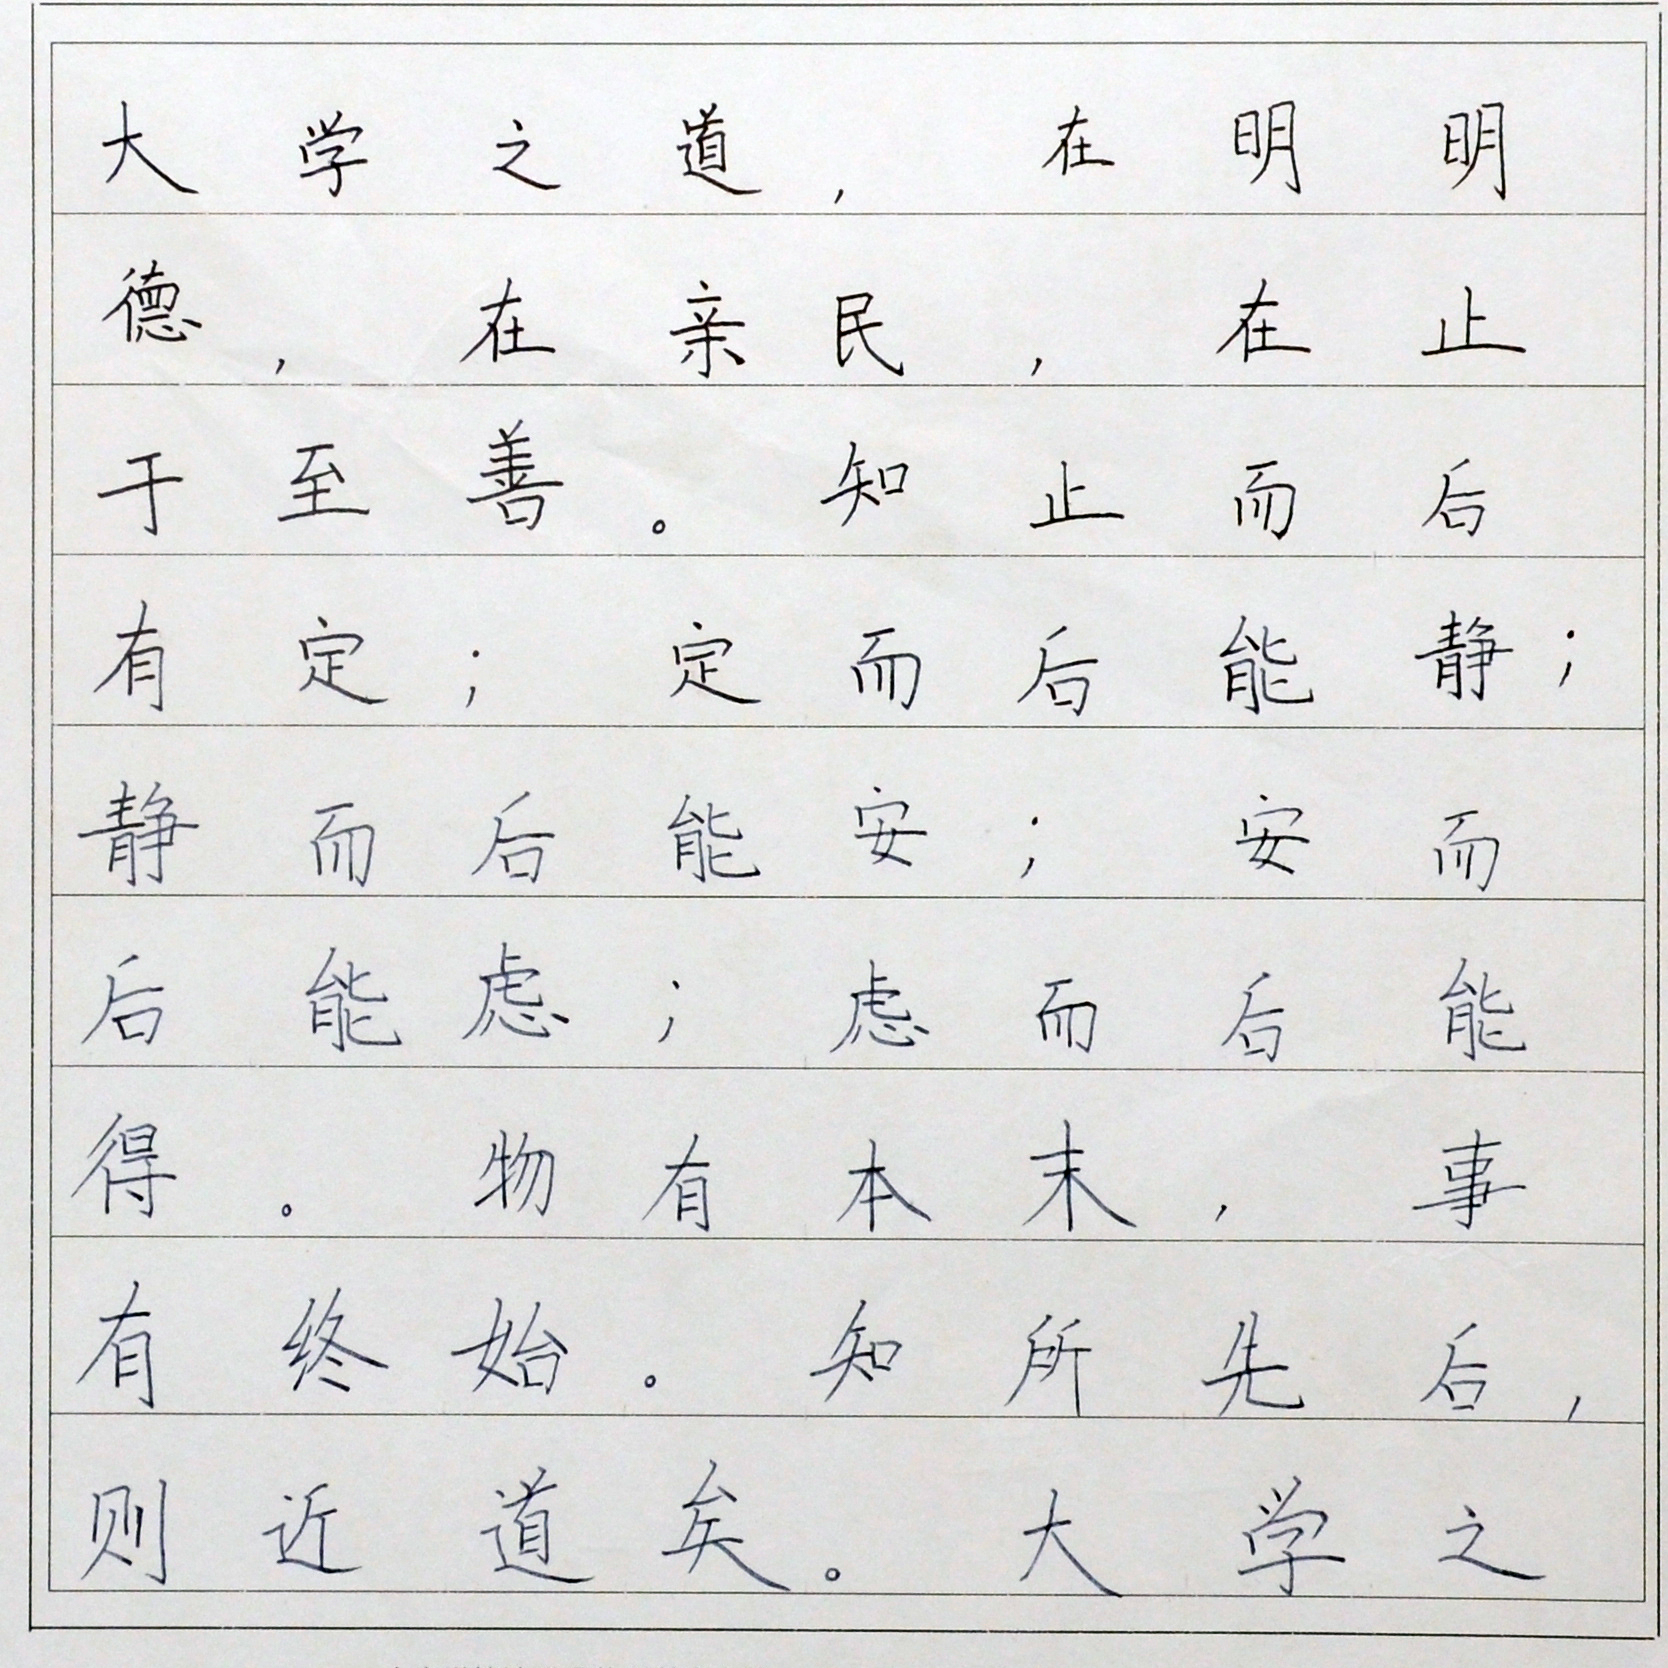 大学之道，在明明
德，在亲民，在止
于至善。知止而后
有定；定而后能静；
静而后能安；安而
后能虑；虑而后能
得。物有本末，事
有终始。知所先后，
则近道矣。大学之